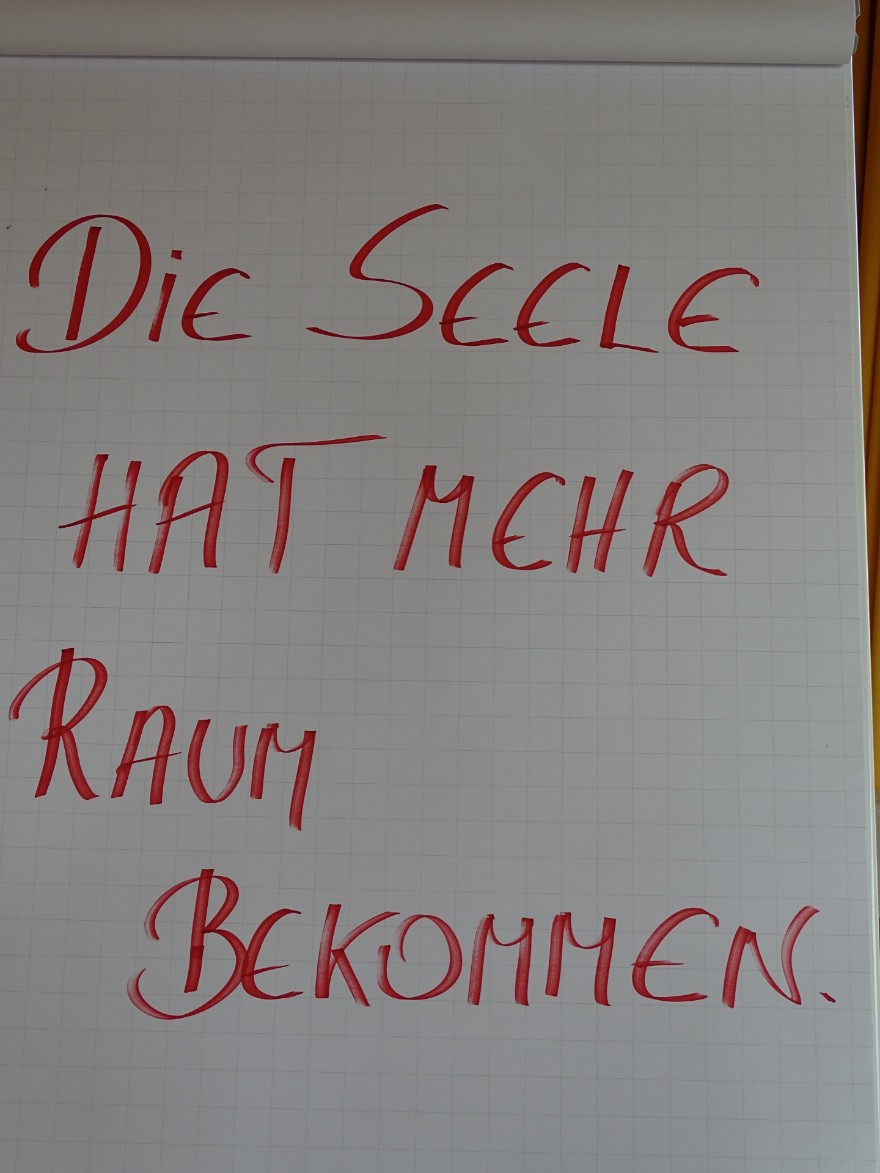 Die Seele
hat mehr
Raum
Bekommen.